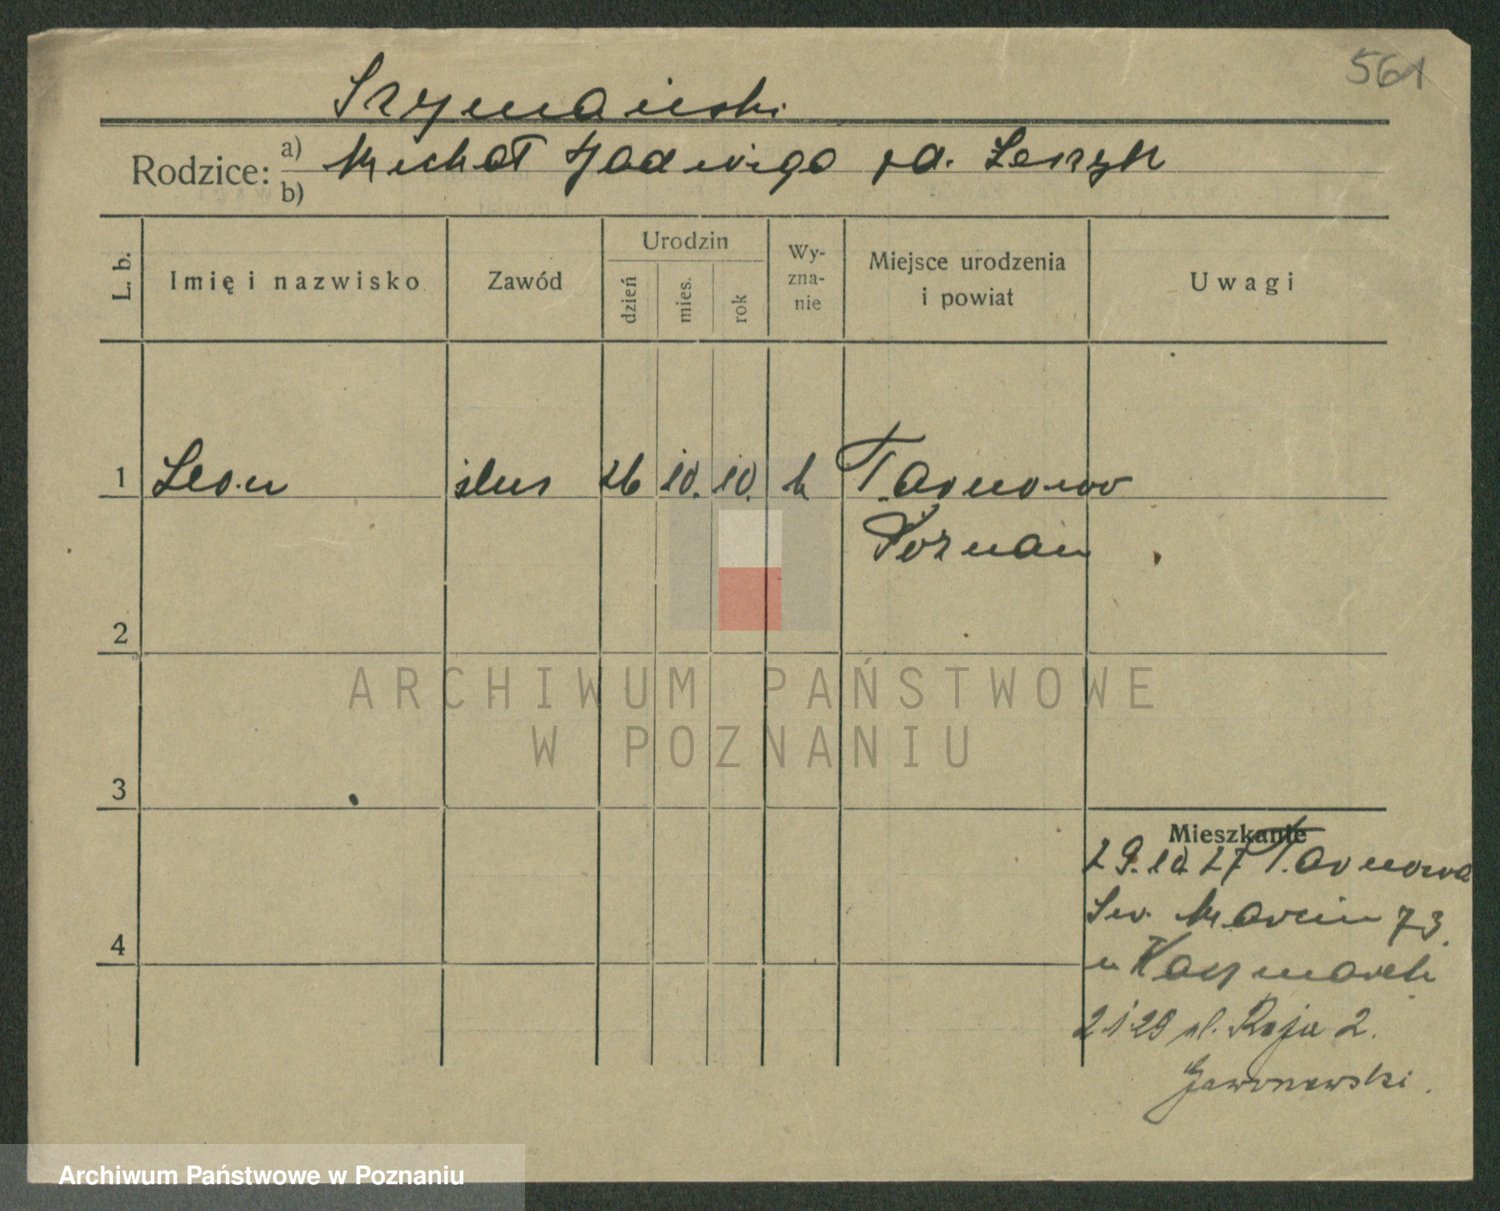 561
Szymański
Rodzice: a) Michał Jadwiga zd. Leszyk
b)
L. b. Imię i nazwisko Zawód Urodzin dzień mies. rok Wyznanie Miejsce urodzenia i powiat Uwagi
1 Leon ślus 26 10. 10. k Tarnowo
Poznań
2
ARCHIWUM PAŃSTWOWE
W POZNANIU
3
Mieszkanie
29.10 27 Tarnowa
4 Św. Marcin 73.
u Kaczmarek
2 1 29 ul. Reja 2.
Jaworowski.
Archiwum Państwowe w Poznaniu